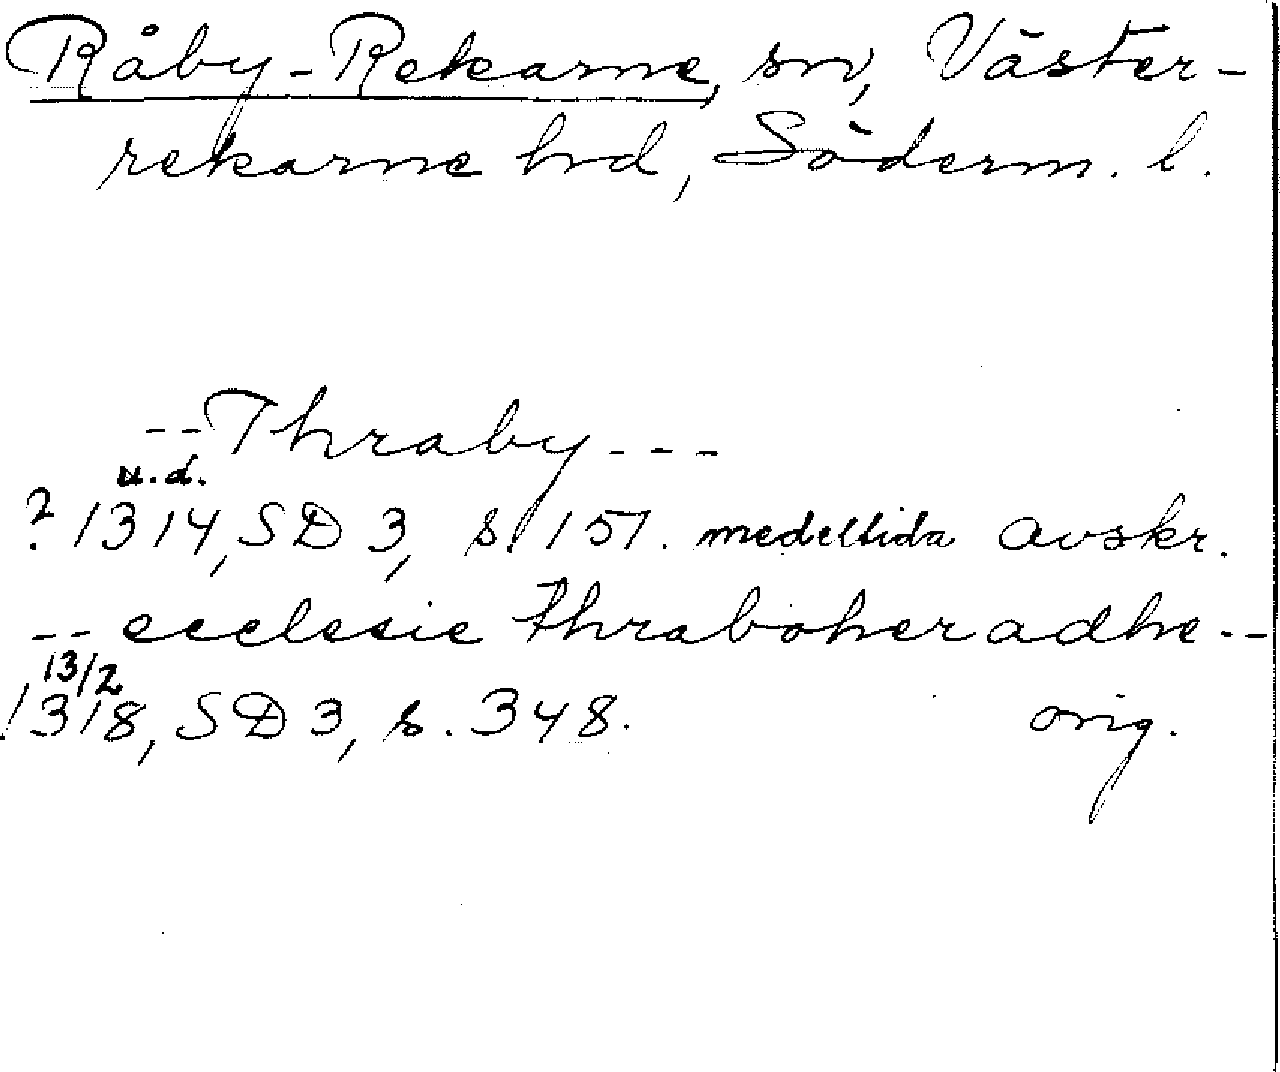 Råby-Rekarne, sn, Väster-
rekarne hd, Söderm. l.
--Thraby---
u.d.
? 1314, SD 3, s. 151. medeltida avskr.
-- ecclesie thraboheradhe--
13/2
1318, SD 3, s. 348. orig.